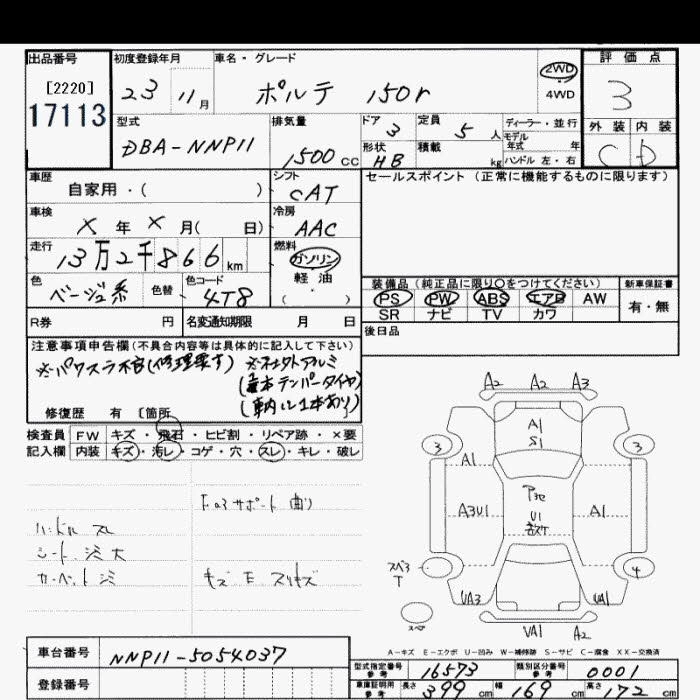 出品番号 初度登録年月 車名・グレード 評価点
[2220] 23 11月 ポルテ 150r 2WD 4WD 3
17113 型式 排気量 ドア 3 定員 5人 ディーラー・並行 外装 内装
DBA-NNP11 1500CC 形状 HB 積載 kg モデル年式 年 ハンドル 左・右 C D
車歴 シフト セールスポイント(正常に機能するものに限ります)
自家用・( ) CAT
車検 冷房
X年X月( 日) AAC
走行 燃料
13万2千866km ガソリン
色 色替 色コード 軽油 装備品(純正品に限り○をつけてください) 新車保証書
ベージュ系 4T8 ( ・ ) PS PW ABS エアB AW 有・無
SR ナビ TV カワ
R券 円 名変通知期限 月 日 後日品
注意事項申告欄(不具合内容等は具体的に記入して下さい)
※パワスラ不良(修理要す) ※ネクトアルミ
テンパータイヤ
(車内に1本あり)
修復歴 有 〔箇所
検査員 FW キズ・飛石・ヒビ割・リペア跡・×要
記入欄 内装 キズ・汚レ・コゲ・穴・スレ・キレ・破レ
サポート 曲り
ハンドル スレ
シート シミ 大
カーペット シミ
A2 A2 A3
A1
S1
3 3
A1
A3U1 A1
U1
スペ3
T
4
UA3 UA1
スペア
VA1 A2
A-キズ E-エクボ U-凹み W-補修跡 S-サビ C-腐食 XX-交換済
車台番号 NNP11-5054037
型式指定番号 参考 16573 類別区分番号 参考 0001
登録番号 車庫証明用 参考 長さ 399cm 幅 169cm 高さ 172cm